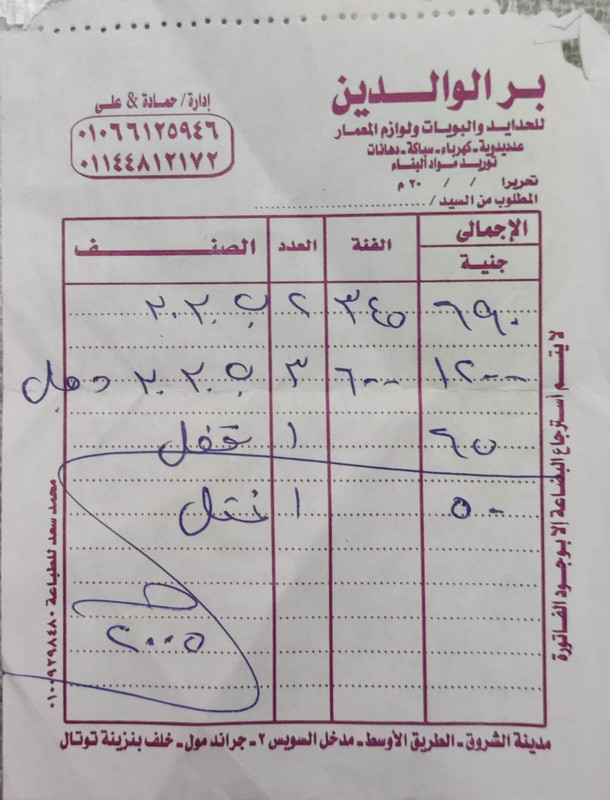 بر الوالدين
للحدايد والبويات ولوازم المعمار
عدديدوية - كهرباء - سباكة - دهانات
توريد مواد البناء
إدارة / حمادة & على
٠١٠٦٦١٢٥٩٤٦
٠١١٤٤٨١٢١٧٢
تحريرا / / ٢٠ م
المطلوب من السيد /
الإجمالى الفئة العدد الصنف
جنية
٦٩٠ ٣٤٥ ٢ ب ٢٠٣٠
١٢٠٠ ٦٠٠ ٣ ب ٢٠٣٠
٦٥ ١ قفل
٥٠ ١ نقل
٢٠٠٥
لا يتم إسترجاع البضاعة إلا بوجود الفاتورة
محمد سعد للطباعة ٠١٠٠٩٢٩٨٤٨٠
مدينة الشروق - الطريق الأوسط - مدخل السويس ٢ - جراند مول - خلف بنزينة توتال